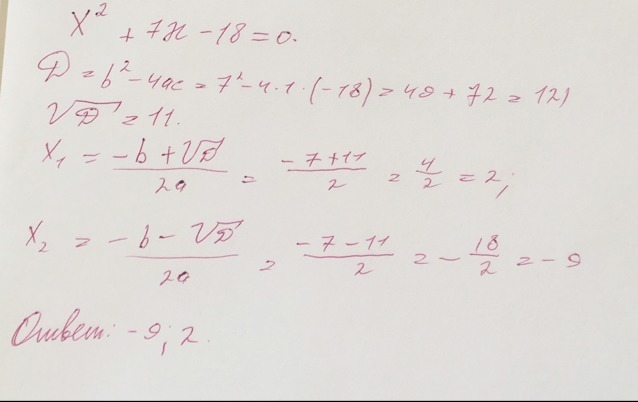 x² + 7x - 18 = 0.
D = b² - 4ac = 7² - 4·1·(-18) = 49 + 72 = 121
√D = 11.
x₁ = (-b + √D)/2a = (-7 + 11)/2 = 4/2 = 2;
x₂ = (-b - √D)/2a = (-7 - 11)/2 = -18/2 = -9
Ответ: -9; 2.